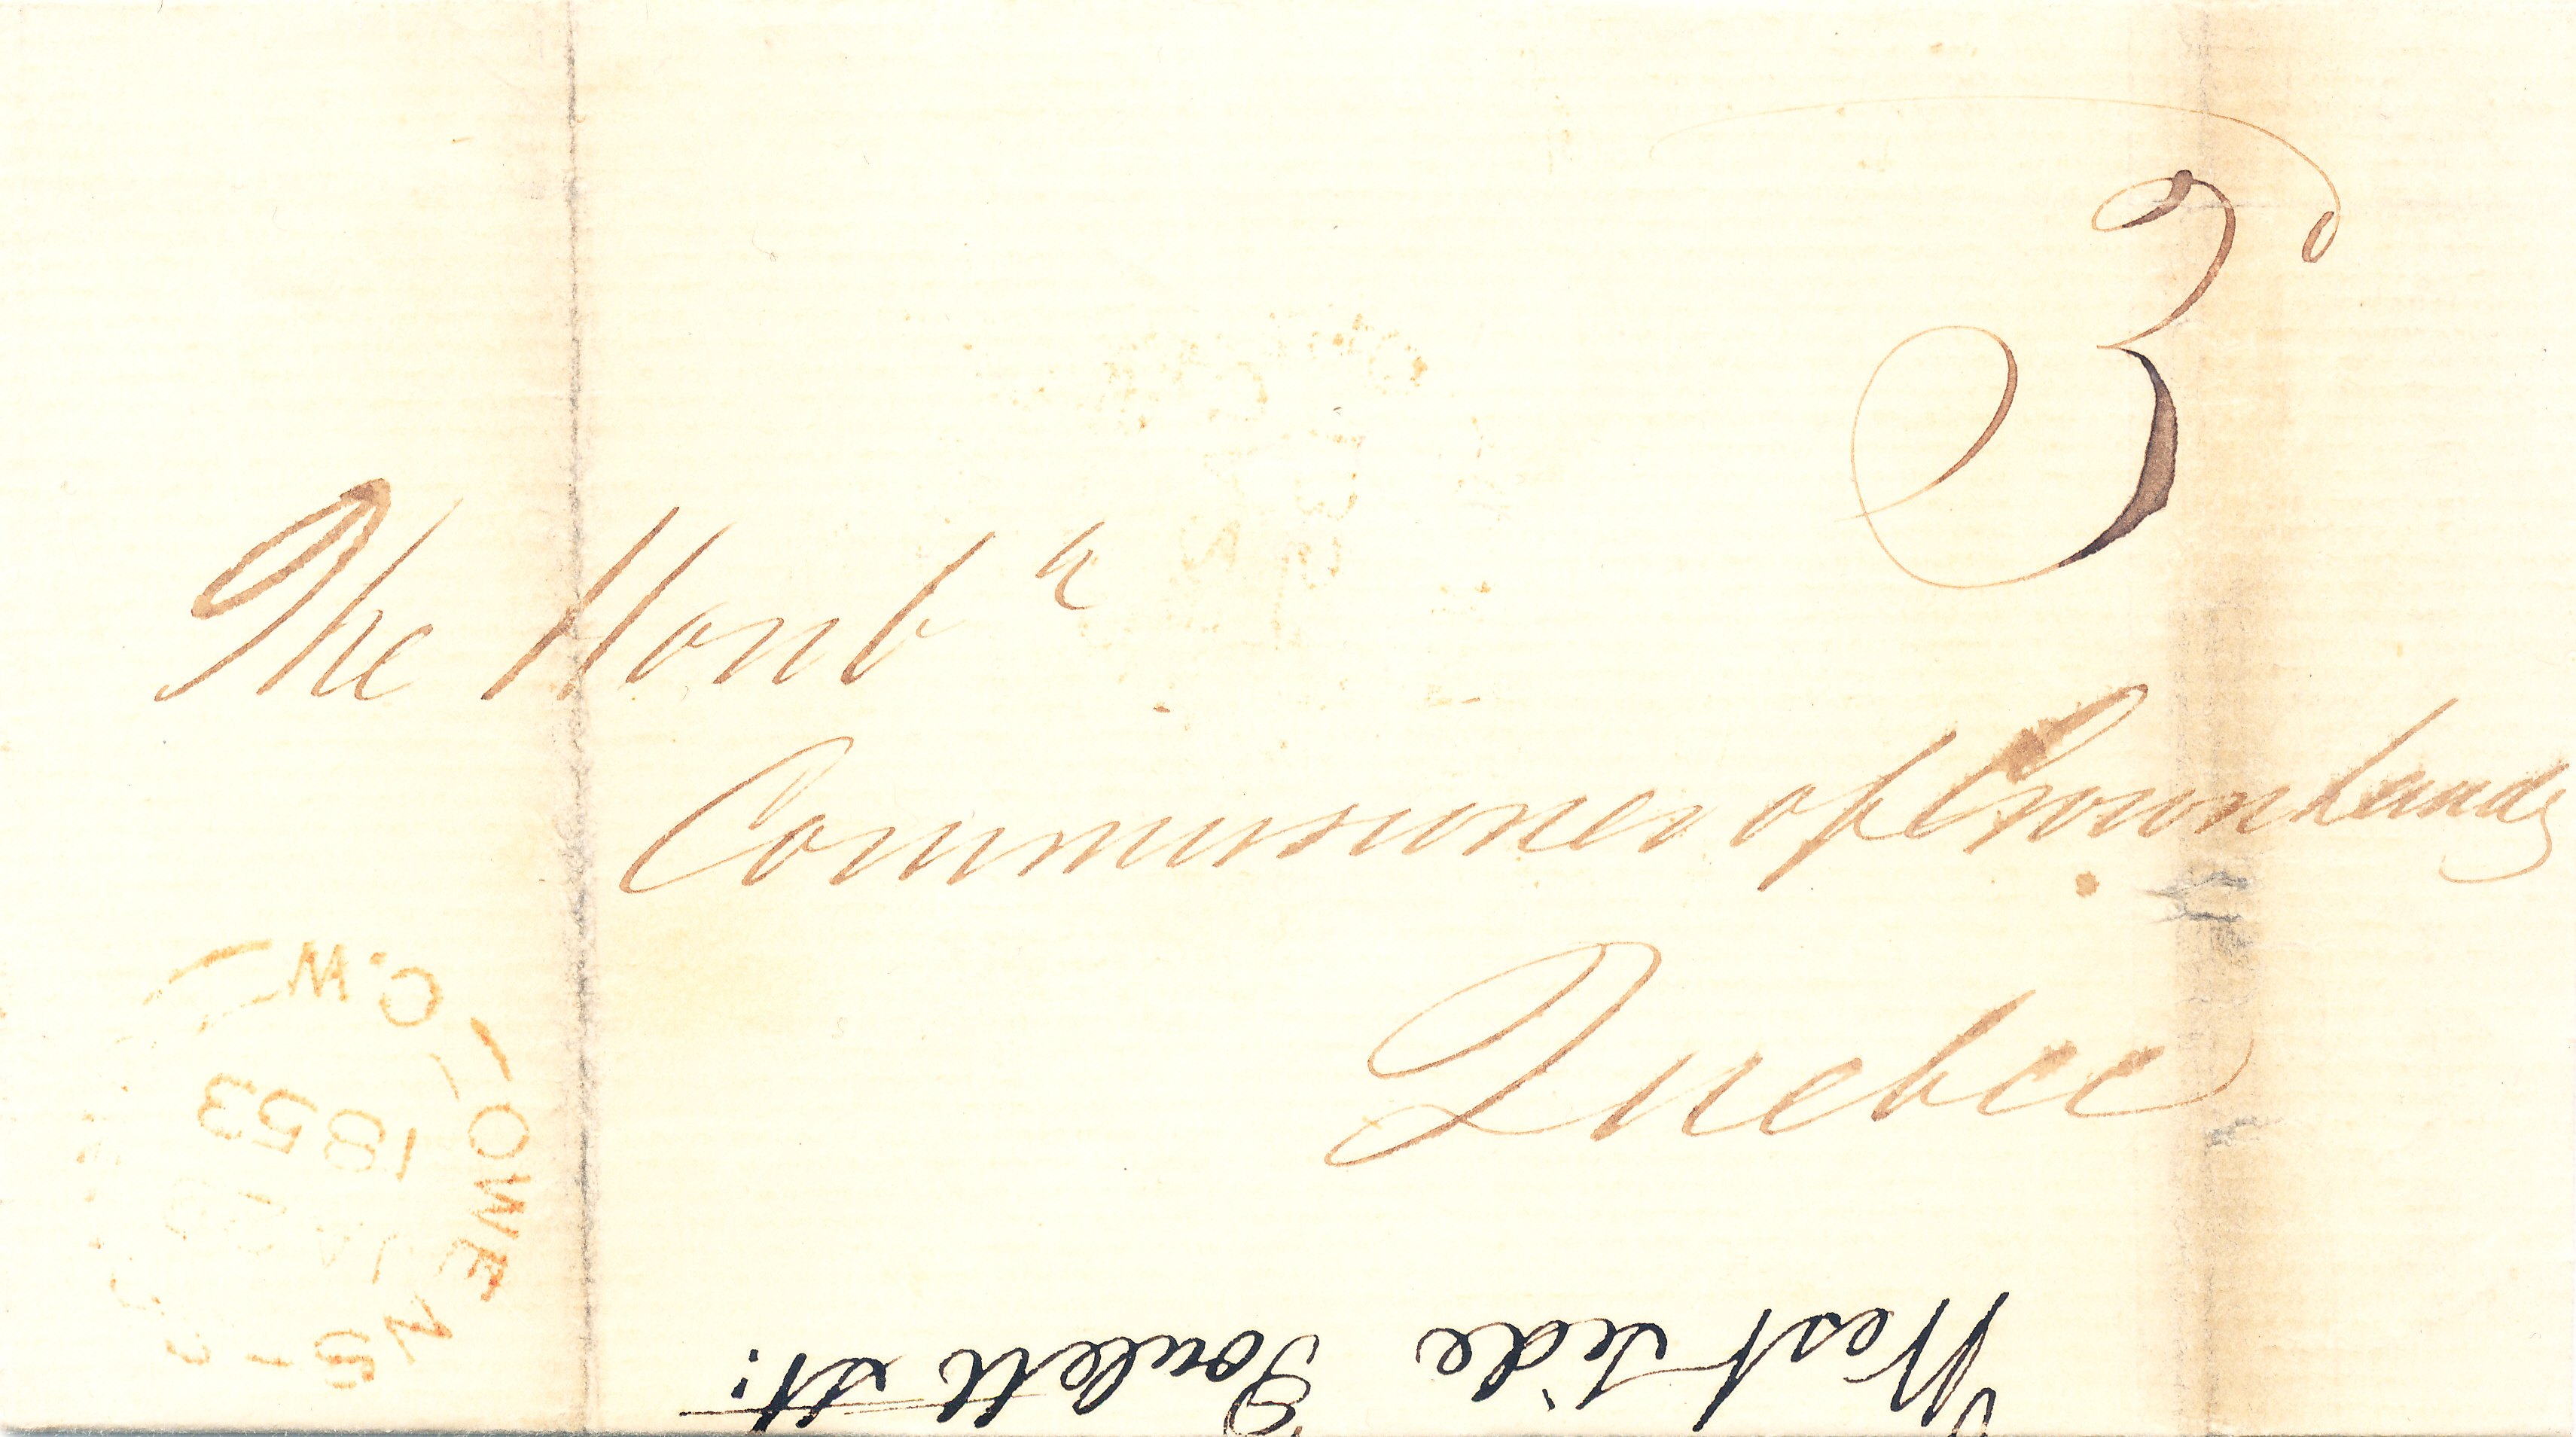 3d
The Honble
Commissioner of Crown Lands
Quebec
OWEN S
C.W.
JA
1853
West side Poulett St.